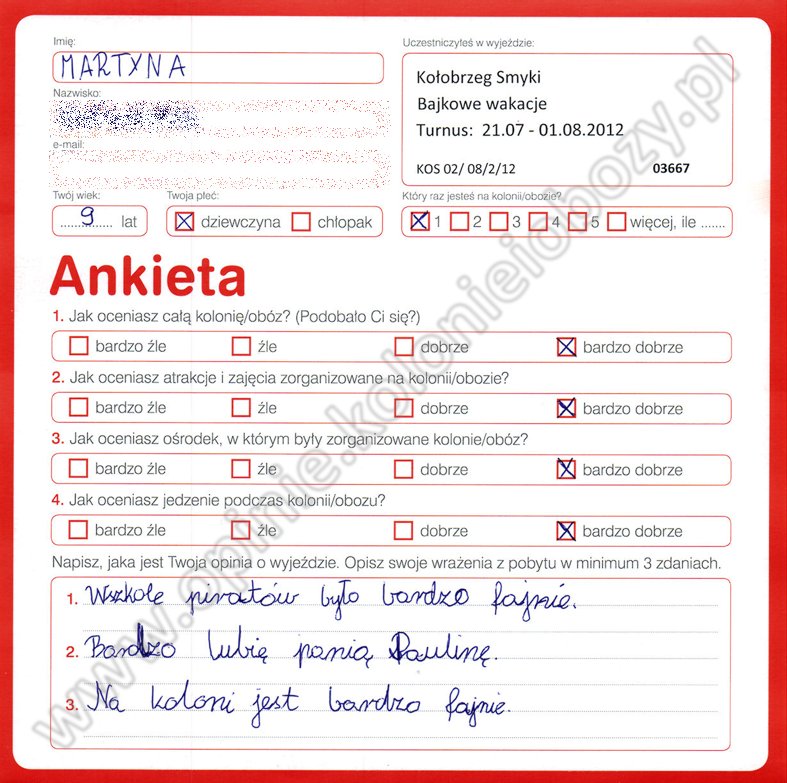 Imię:
MARTYNA
Nazwisko:
e-mail:
Twój wiek:
9 lat
Twoja płeć:
dziewczyna chłopak
Uczestniczyłeś w wyjeździe:
Kołobrzeg Smyki
Bajkowe wakacje
Turnus: 21.07 - 01.08.2012
KOS 02/ 08/2/12 03667
Który raz jesteś na kolonii/obozie?
1 2 3 4 5 więcej, ile .......
Ankieta
1. Jak oceniasz całą kolonię/obóz? (Podobało Ci się?)
bardzo źle źle dobrze bardzo dobrze
2. Jak oceniasz atrakcje i zajęcia zorganizowane na kolonii/obozie?
bardzo źle źle dobrze bardzo dobrze
3. Jak oceniasz ośrodek, w którym były zorganizowane kolonie/obóz?
bardzo źle źle dobrze bardzo dobrze
4. Jak oceniasz jedzenie podczas kolonii/obozu?
bardzo źle źle dobrze bardzo dobrze
Napisz, jaka jest Twoja opinia o wyjeździe. Opisz swoje wrażenia z pobytu w minimum 3 zdaniach.
1. Wszkole piratów było bardzo fajnie.
2. Bardzo lubię panią Paulinę.
3. Na koloni jest bardzo fajnie.
www.opinie.kolonieiobozy.pl